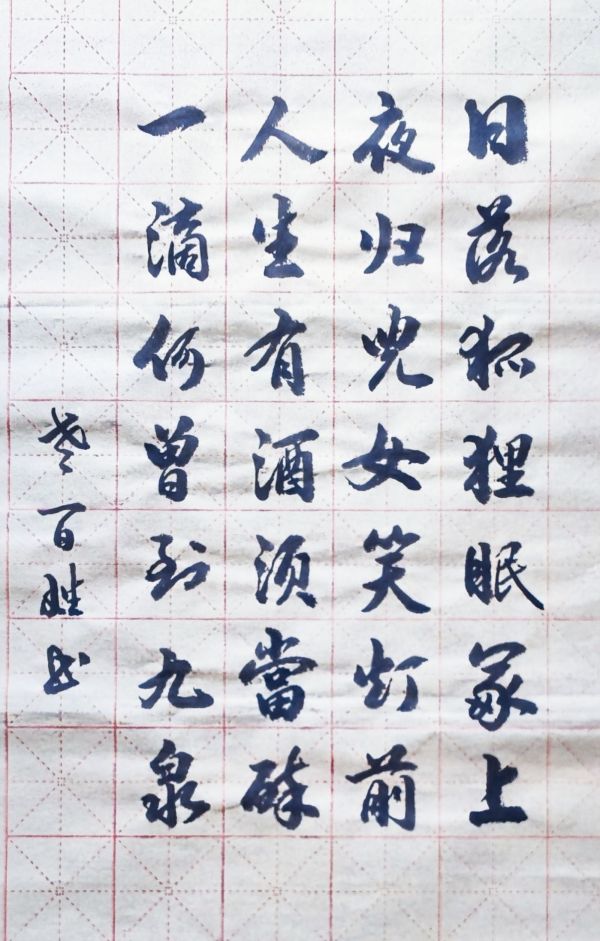 日落狐狸眠冢上
夜归兒女笑灯前
人生有酒须當醉
一滴何曾到九泉
老百姓书